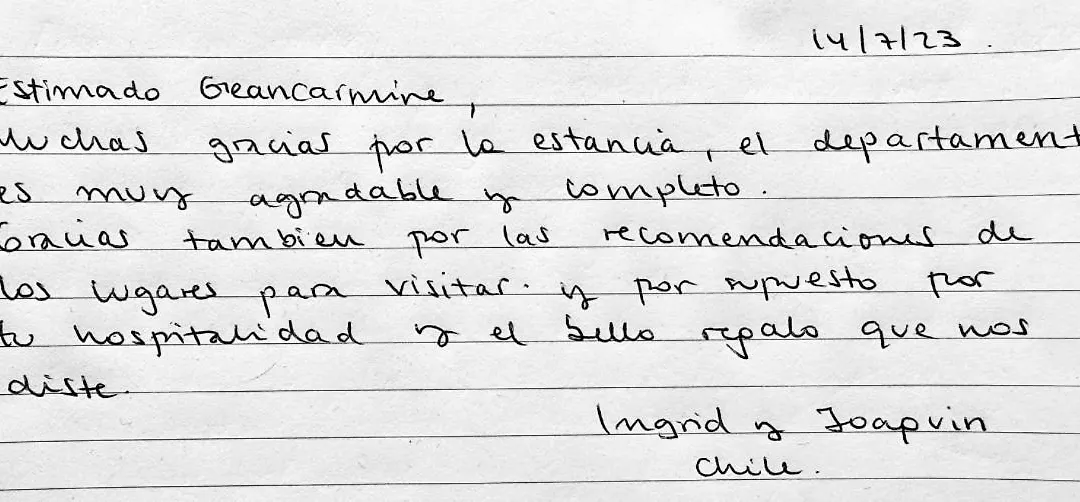 14/7/23.
Estimado Geancarmine,
Muchas gracias por la estancia, el departament
es muy agradable y completo.
Gracias tambien por las recomendaciones de
los lugares para visitar. y por supuesto por
tu hospitalidad y el bello regalo que nos
diste.
Ingrid y Joaquin
Chile.